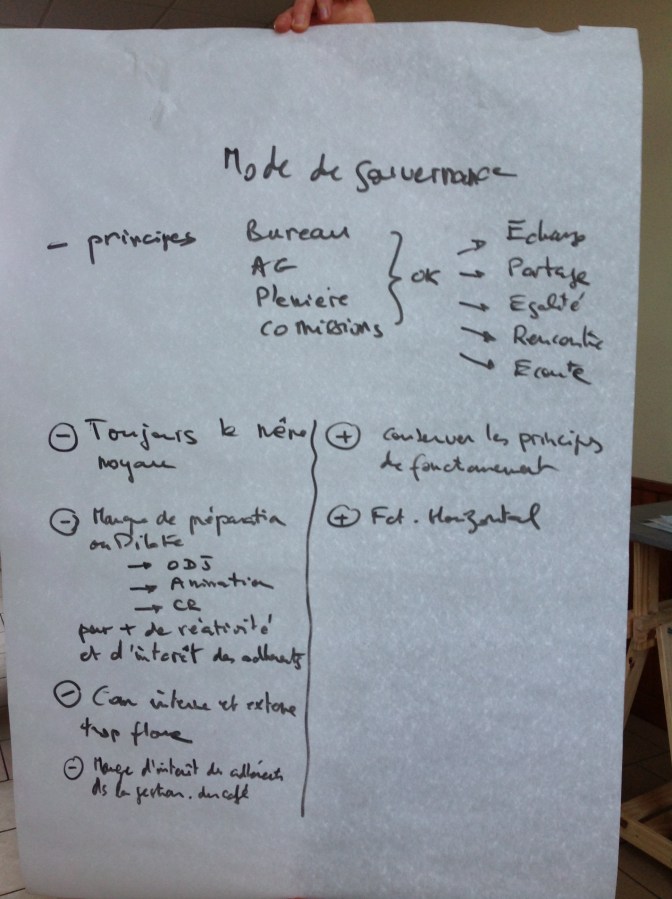 Mode de gouvernance
- principes
Bureau
AG
Pleniere
commissions
} OK
→ Echange
→ Partage
→ Egalité
→ Rencontre
→ Ecoute
⊖ Toujours le même
noyau
⊖ Manque de préparation
ou Pilote
→ ODJ
→ Animation
→ CR
pour + de réativité
et d'intérêt des adhérents
⊖ Com interne et externe
trop floue
⊖ Manque d'intérêt des adhérents
ds la gestion. du café
⊕ conserver les principes
de fonctionnement
⊕ Fct. Horizontal